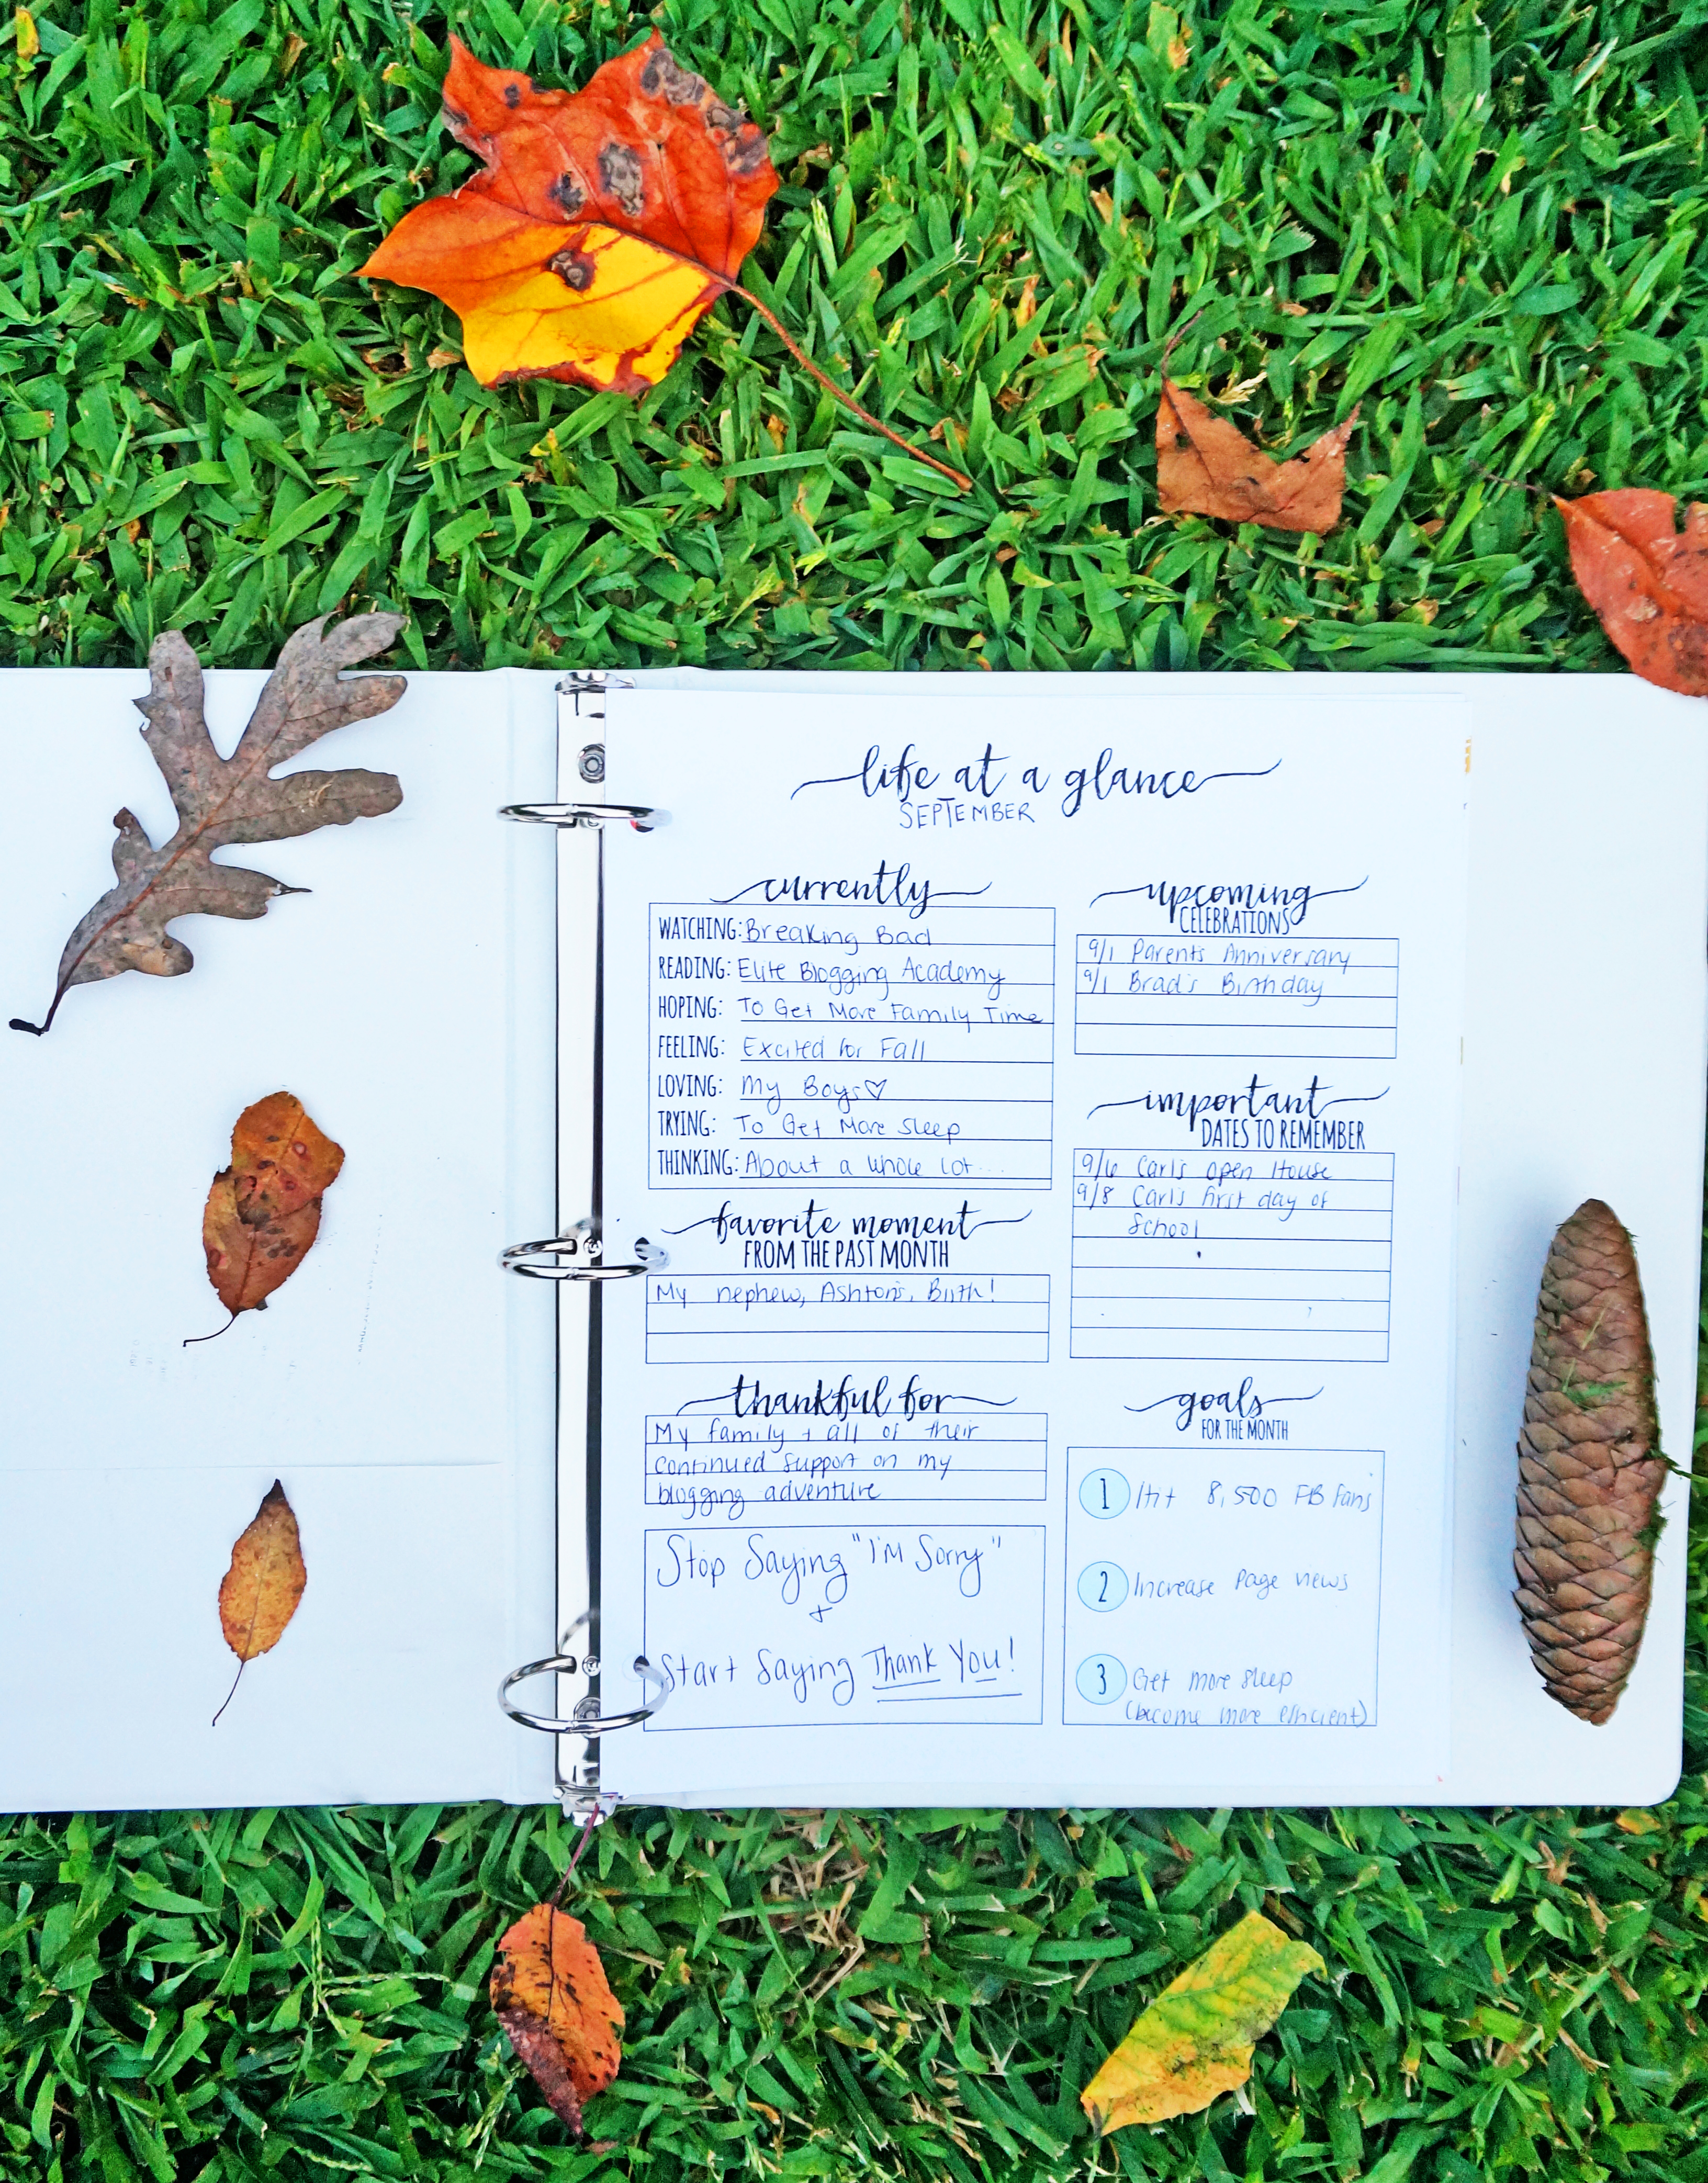 life at a glance
SEPTEMBER
currently
WATCHING: Breaking Bad
READING: Elite Blogging Academy
HOPING: To Get More Family Time
FEELING: Excited for Fall
LOVING: My Boys♡
TRYING: To Get More Sleep
THINKING: About a whole lot...
favorite moment
FROM THE PAST MONTH
My nephew, Ashton's, Birth!
thankful for
My family + all of their
continued support on my
blogging adventure
Stop Saying "I'M Sorry"
+
Start Saying Thank You!
upcoming
CELEBRATIONS
9/1 Parent's Anniversary
9/1 Brad's Birthday
important
DATES TO REMEMBER
9/6 Carl's open House
9/8 Carl's first day of
School
goals
FOR THE MONTH
1 Hit 8,500 FB Fans
2 Increase Page views
3 Get more sleep
(become more efficient)